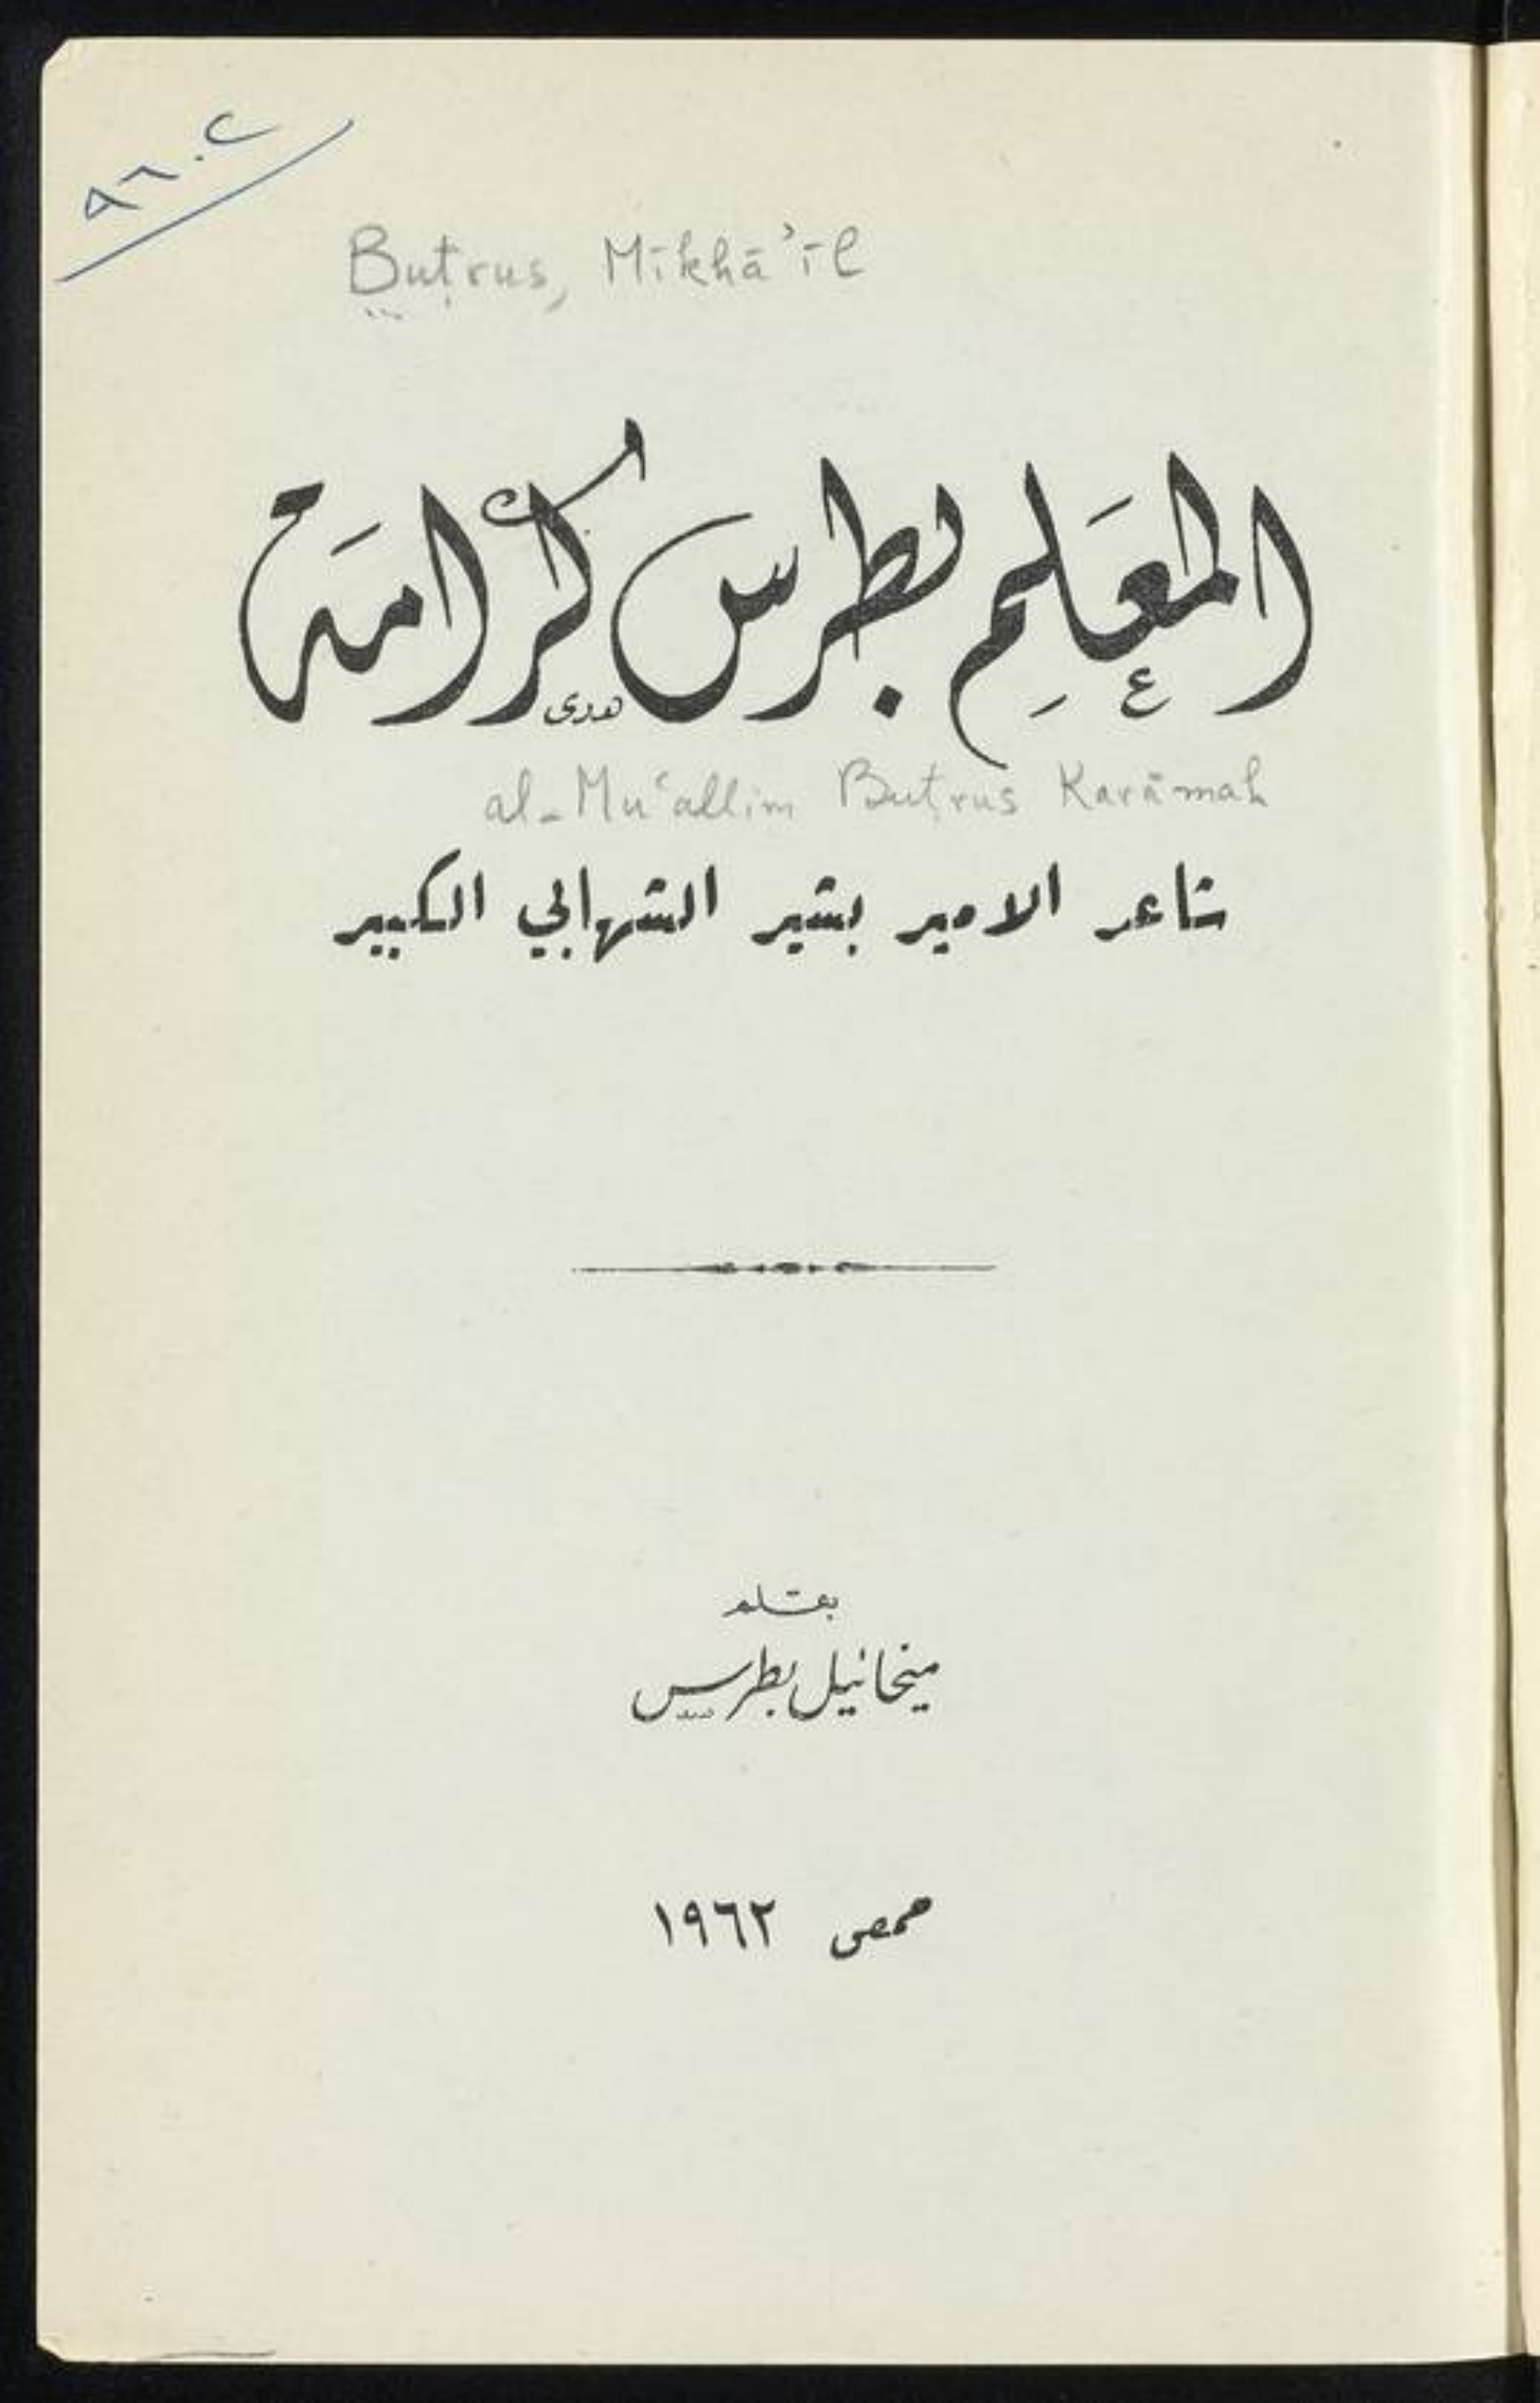 Buṭrus, Mīkhā'īl
المعَلِم بطرس كرامَة
al-Mu'allim Buṭrus Karāmah
شاعر الامير بشير الشهابي الكبير
بقلم
ميخائيل بطرس
حمص ١٩٦٢